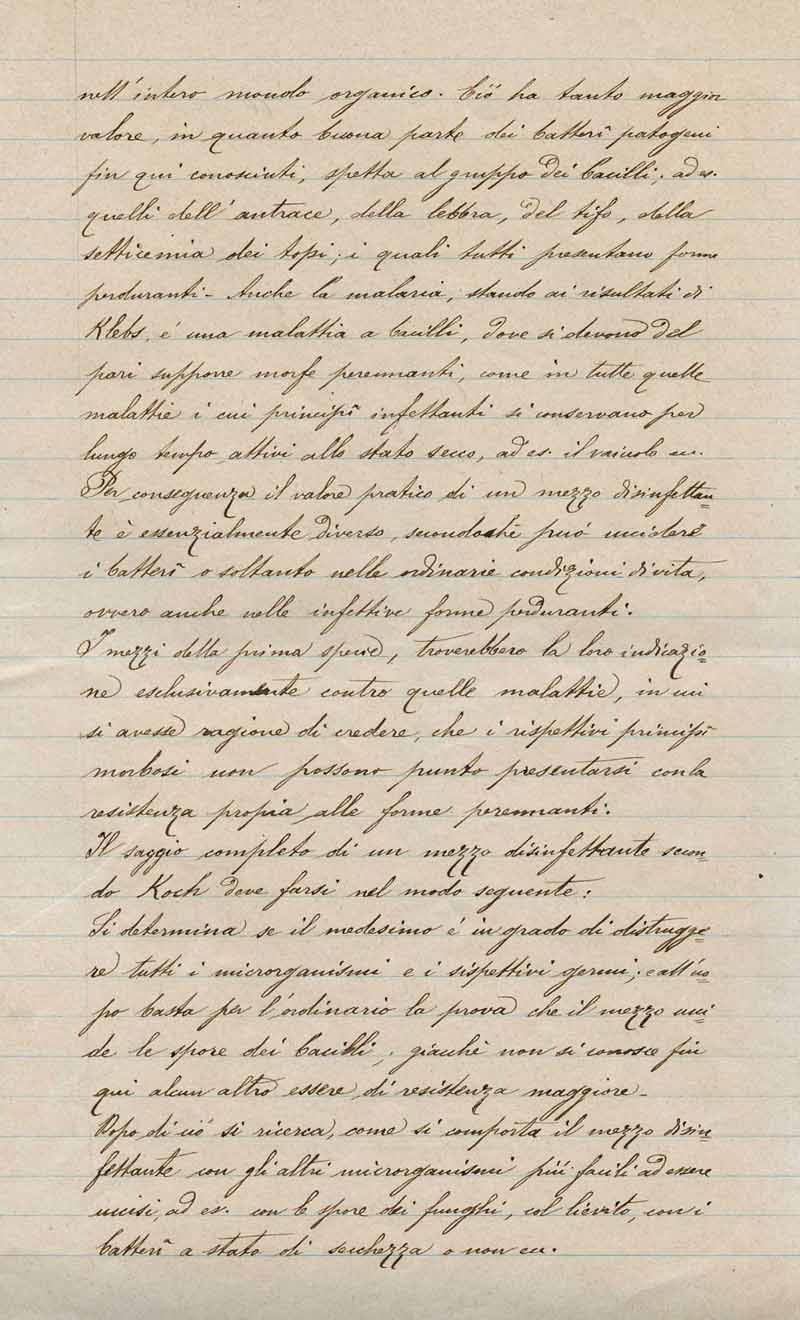 nell'intero mondo organico. Ciò ha tanto maggior
valore, in quanto buona parte dei batterî patogeni
fin quì conosciuti, spetta al gruppo dei bacilli; ad es.
quelli dell'antrace, della lebbra, del tifo, della
setticemia dei topi; i quali tutti presentano forme
perduranti - Anche la malaria, stando ai risultati di
Klebs, é una malattia a bacilli, dove si devono del
pari supporre morfe perennanti, come in tutte quelle
malattie i cui principî infettanti si conservano per
lungo tempo attivi allo stato secco, ad es. il vaiuolo ec.
Per conseguenza il valore pratico di un mezzo disinfettan=
te è essenzialmente diverso, secondochè può uccidere
i batterî o soltanto nelle ordinarie condizioni di vita,
ovvero anche nelle infettive forme perduranti.
I mezzi della prima specie, troverebbero la loro indicazio=
ne esclusivamente contro quelle malattie, in cui
si avesse ragione di credere, che i rispettivi principî
morbosi non possono punto presentarsi con la
resistenza propia alle forme perennanti.
Il saggio completo di un mezzo disinfettante secon=
do Koch deve farsi nel modo seguente:
Si determina se il medesimo é in grado di distrugge=
re tutti i microrganismi e i rispettivi germi; e all'uo=
po basta per l'ordinario la prova che il mezzo ucci=
de le spore dei bacilli; giacchè non si conosce fin
qui alcun altro essere di resistenza maggiore -
Dopo di ciò si ricerca, come si comporta il mezzo disin=
fettante con gli altri microrganismi più facili ad essere
uccisi, ad es. con le spore dei funghi, col lievito, con i
batterî a stato di secchezza o non ec.